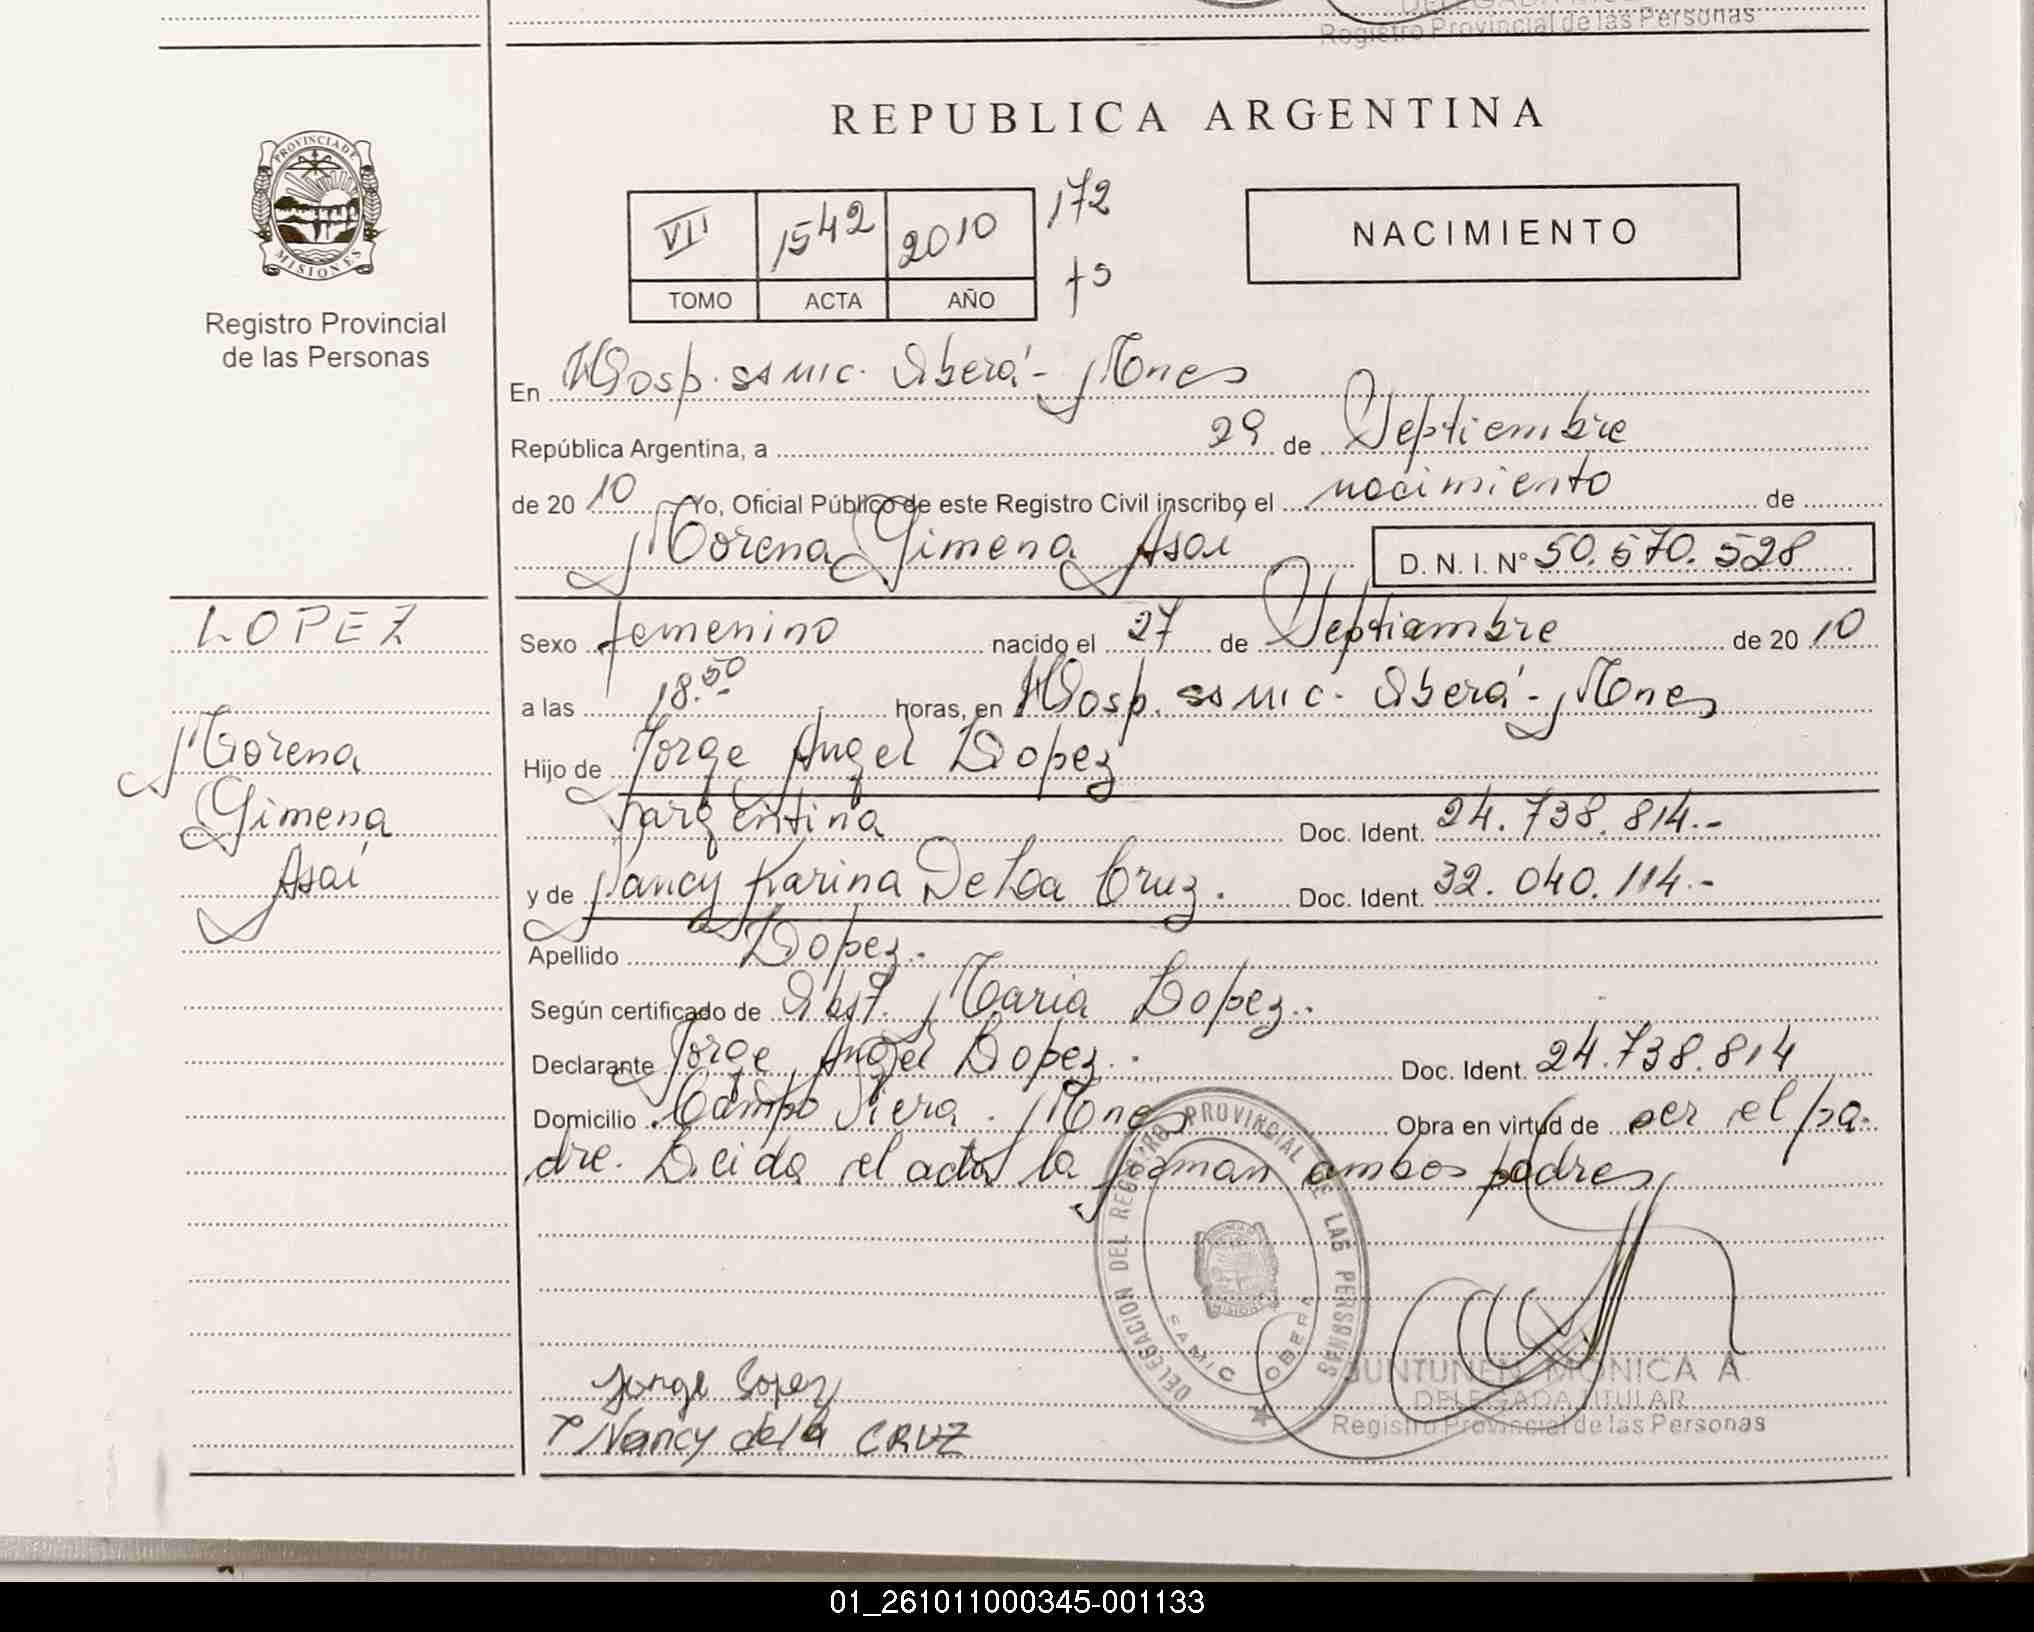 Registro Provincial de las Personas
REPUBLICA ARGENTINA
PROVINCIA DE
MISIONES
Registro Provincial
de las Personas
VII 1542 2010 172
TOMO ACTA AÑO fs
NACIMIENTO
En Hosp. SAMIC. Oberá - Mnes
República Argentina, a 29 de Septiembre
de 20 10 Yo, Oficial Público de este Registro Civil inscribo el nacimiento de
Morena Gimena Asaí D. N. I. N° 50.570.528
LOPEZ
Morena
Gimena
Asaí
Sexo femenino nacido el 27 de Septiembre de 20 10
a las 18.50 horas, en Hosp. SAMIC. Oberá - Mnes
Hijo de Jorge Angel Lopez
argentina Doc. Ident. 24.738.814.-
y de Nancy Karina De La Cruz. Doc. Ident. 32.040.114.-
Apellido Lopez.
Según certificado de Obst. Maria Lopez.
Declarante Jorge Angel Lopez. Doc. Ident. 24.738.814
Domicilio Campo Viera. Mnes Obra en virtud de ser el pa-
dre. Leida el acta la firman ambos padres
DELEGACION DEL REGISTRO PROVINCIAL DE LAS PERSONAS
MISIONES
SAMIC OBERA
Jorge Lopez
Nancy de la CRUZ
JUNTUNEN MONICA A.
DELEGADA TITULAR
Registro Provincial de las Personas
01_261011000345-001133